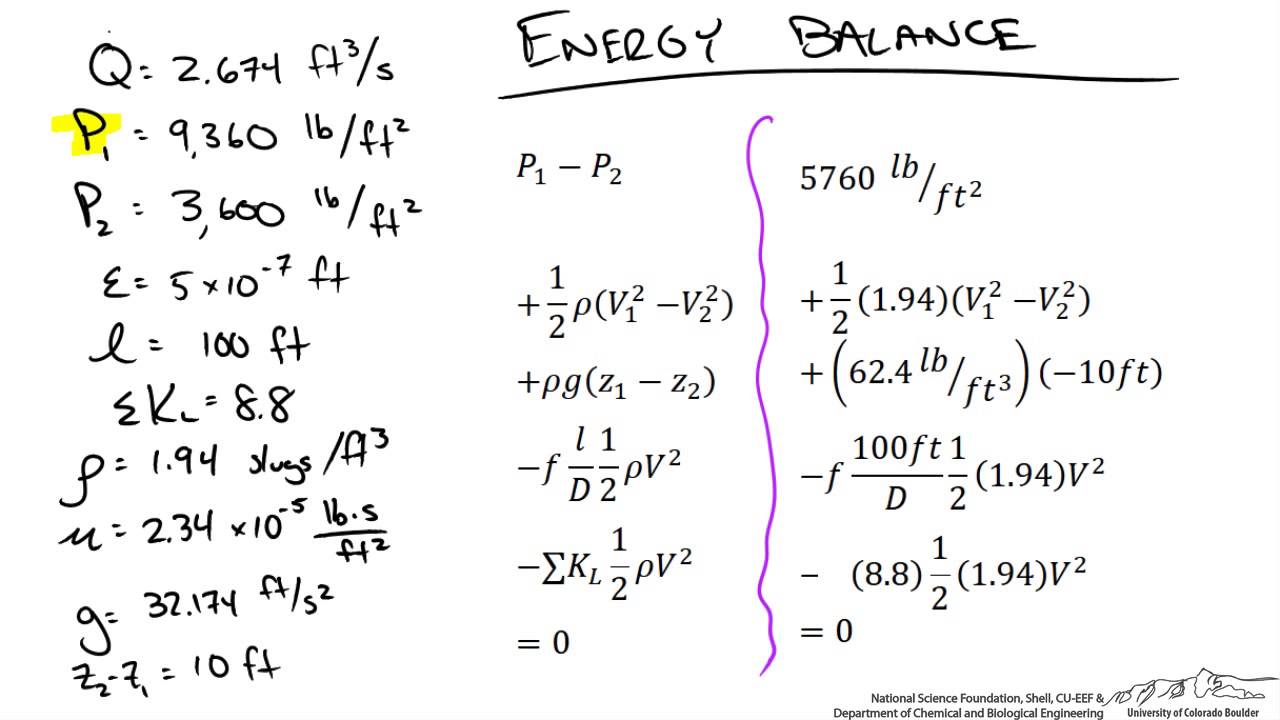 ENERGY BALANCE
Q = 2.674 ft³/s
P₁ = 9,360 lb/ft²
P₂ = 3,600 lb/ft²
ε = 5 × 10⁻⁷ ft
l = 100 ft
ΣK_L = 8.8
ρ = 1.94 slugs/ft³
μ = 2.34 × 10⁻⁵ lb·s/ft²
g = 32.174 ft/s²
z₂ - z₁ = 10 ft
P₁ − P₂
+ 1/2 ρ(V₁² − V₂²)
+ρg(z₁ − z₂)
−f l/D 1/2 ρV²
−∑K_L 1/2 ρV²
= 0
5760 lb/ft²
+ 1/2 (1.94)(V₁² − V₂²)
+ (62.4 lb/ft³)(−10ft)
−f 100ft/D 1/2 (1.94)V²
− (8.8) 1/2 (1.94)V²
= 0
National Science Foundation, Shell, CU-EEF &
Department of Chemical and Biological Engineering
University of Colorado Boulder